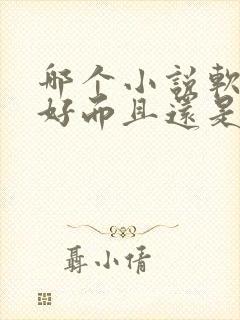 那个小說軟
好而且還是
聶小倩